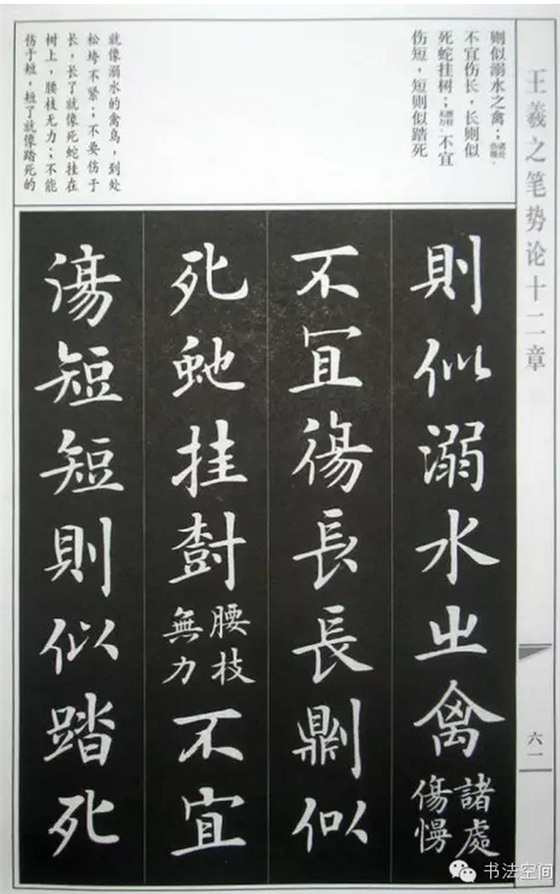 王羲之笔势论十二章
六一
则似溺水之禽；诸处伤慢。
不宜伤长，长则似
死蛇挂树；腰枝无力。不宜
伤短，短则似踏死
就像溺水的禽鸟，到处
松垮不紧；不要伤于
长，长了就像死蛇挂在
树上，腰枝无力；不能
伤于短，短了就像踏死的
則似溺水之禽諸處傷慢
不宜傷長長則似
死虵挂樹腰枝無力不宜
傷短短則似踏死
书法空间